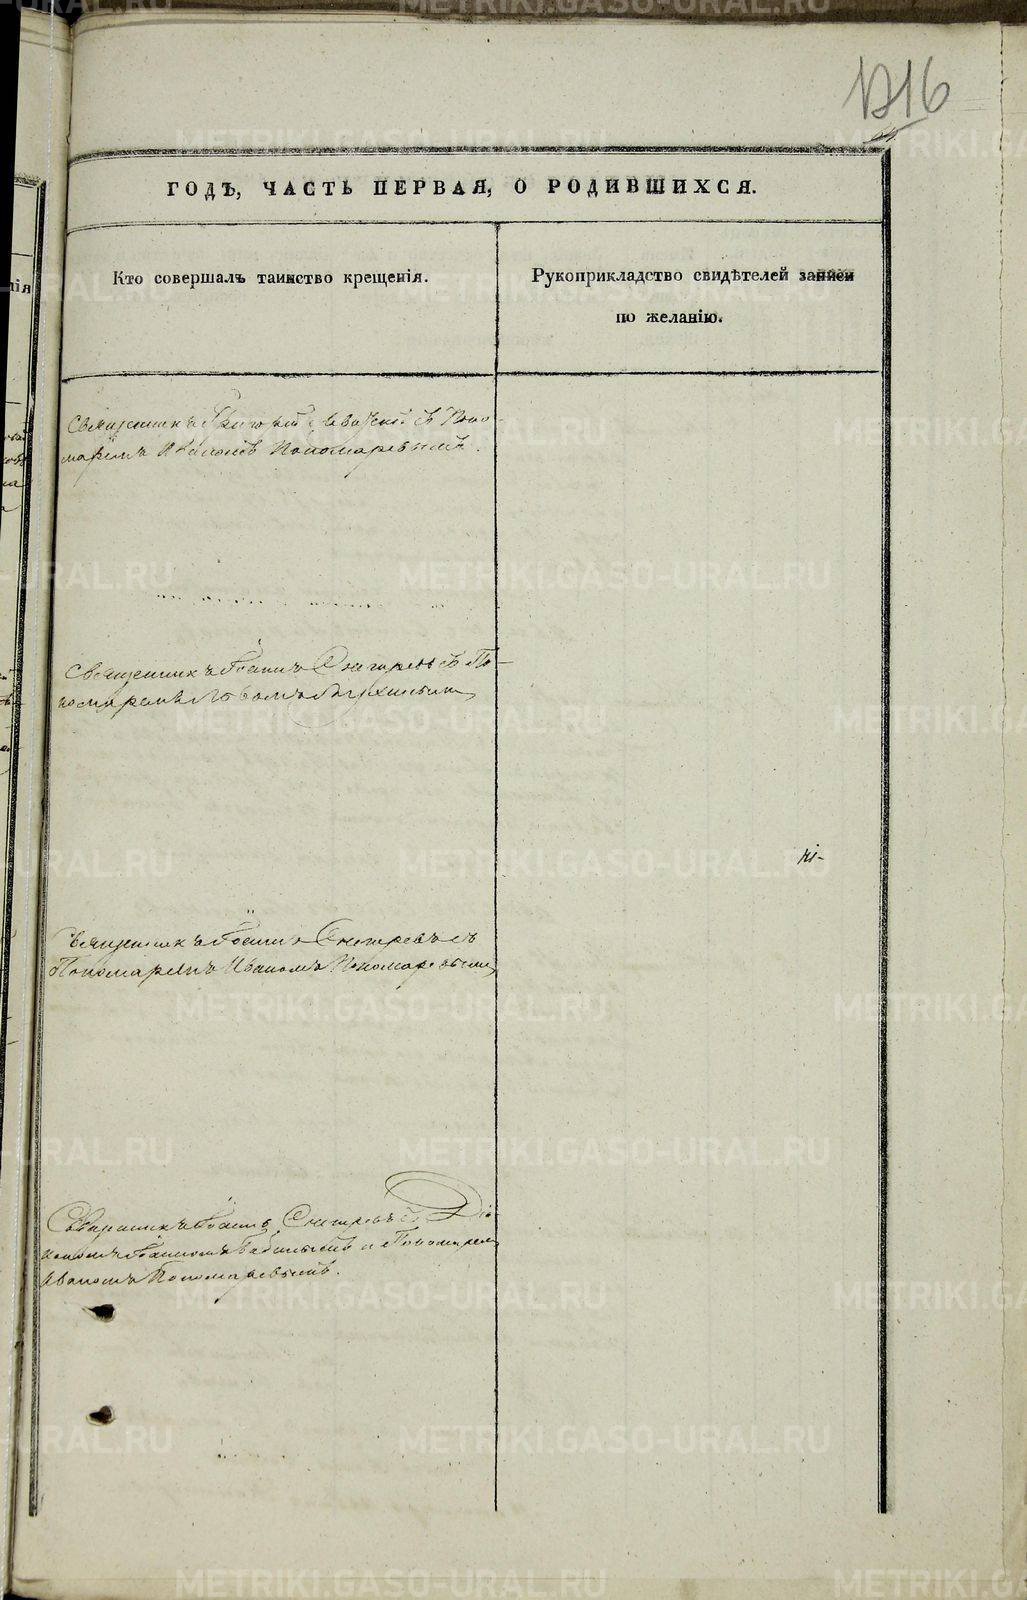 16
ГОДЪ, ЧАСТЬ ПЕРВАЯ, О РОДИВШИХСЯ.
Кто совершалъ таинство крещенія.
Рукоприкладство свидѣтелей записи
по желанію.
Священникъ Григорій съ Поно-
маремъ Иваномъ Пономаревымъ.
Священникъ Іоаннъ Снигиревъ съ По-
номаремъ
Священникъ Іоаннъ Снигиревъ съ
Пономаремъ Иваномъ Пономаревымъ
Священникъ Іоаннъ Снигиревъ съ Діа-
кономъ Іоанномъ и Пономаремъ
Иваномъ Пономаревымъ.
METRIKI.GASO-URAL.RU